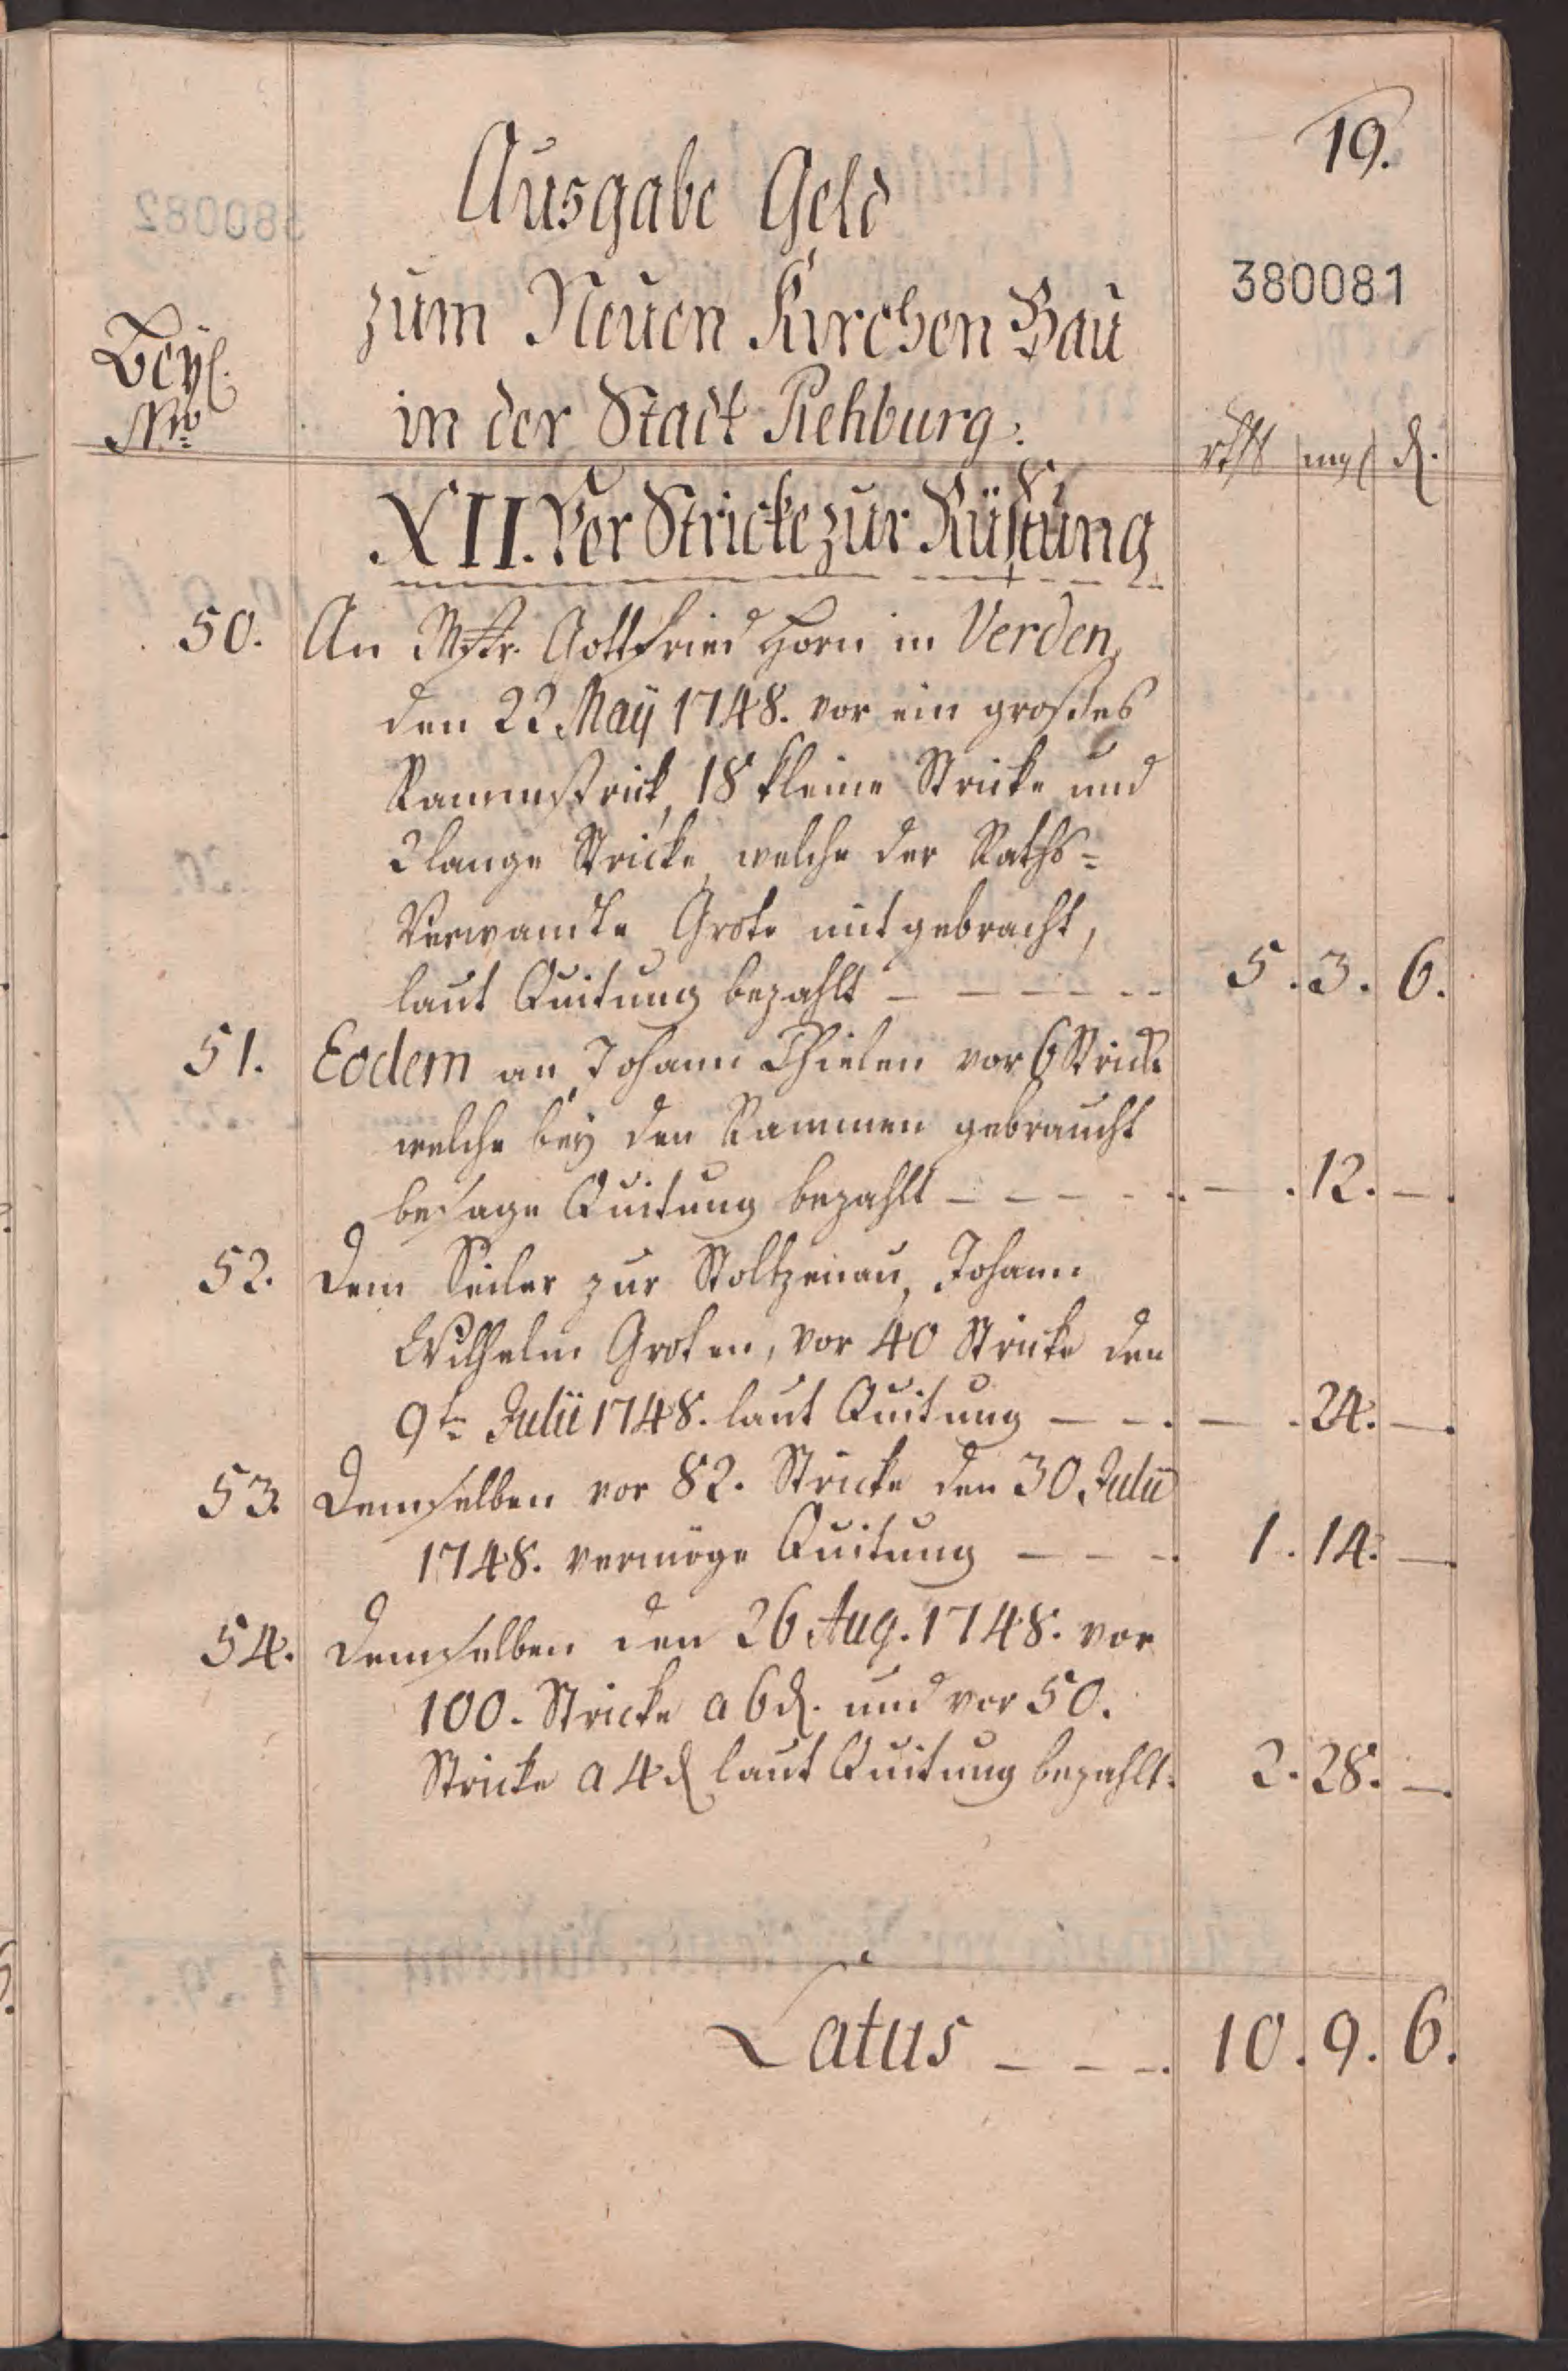 19.
Ausgabe Geld
380081
zum Neuen Kirchen Bau
Beyl.
in der Stadt Rehburg.
Nro
rthlr mgl d.
XII. Vor Stricke zur Rüstung
50. An Mstr. Gottfried Horn in Verden,
den 22 Maij 1748. vor ein großes
Rammstrick, 18 kleine Stricke und
2 lange Stricke, welche der Raths-
Verwandte Grote mitgebracht,
laut Quitung bezahlt - - - - - 5. 3. 6.
51. Eodem an Johann Thielen vor 6 Stricke
welche bey den Rammen gebraucht
besage Quitung bezahlt - - - - - — . 12. —.
52. Dem Seiler zur Stoltzenau, Johann
Wilhelm Groten, vor 40 Stricke den
9ten Julii 1748. laut Quitung - - . — . 24. —.
53. Demselben vor 82. Stricke den 30 Julii
1748. vermöge Quitung - - - . 1. 14. —.
54. Demselben den 26 Aug. 1748. vor
100. Stricke a 6 d. und vor 50.
Stricke a 4 d laut Quitung bezahlt. 2. 28. —.
Latus - - - . 10. 9. 6.